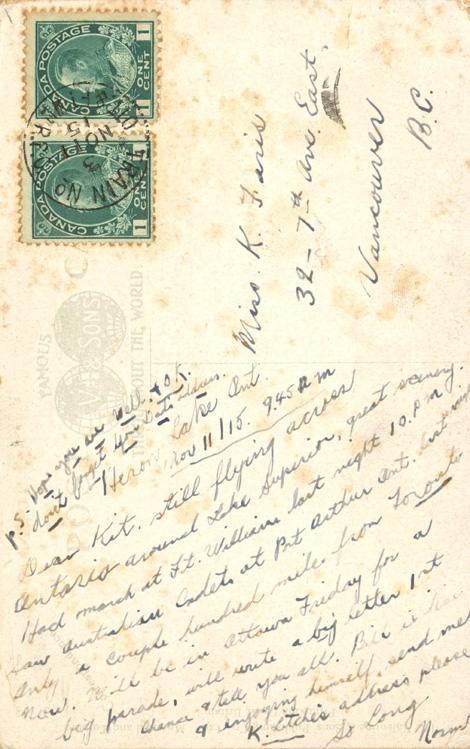 CANADA POSTAGE
1 ONE CENT 1
CANADA POSTAGE
1 ONE CENT 1
TRAIN No
NO 11
15
Miss K. Faris
32 - 7th Ave. East.
Vancouver
B.C.
FAMOUS
SONS
THE WORLD
P.S. Hope you are well & O.K.
don't forget
Heron Lake Ont
Nov 11/15. 9.45 a m
Dear Kit. still flying across
Ontario around Lake Superior, great scenery.
Had march at Ft. William last night 10. P.M.
Saw Australian Cadets at Port Arthur Ont. last night
Only a couple hundred miles from Toronto
Now. Will be in Ottawa Friday for a
big parade, will write a big letter 1st
chance & tell you all. Bill is here
& enjoying himself, send me
K. address please
So Long
Norm